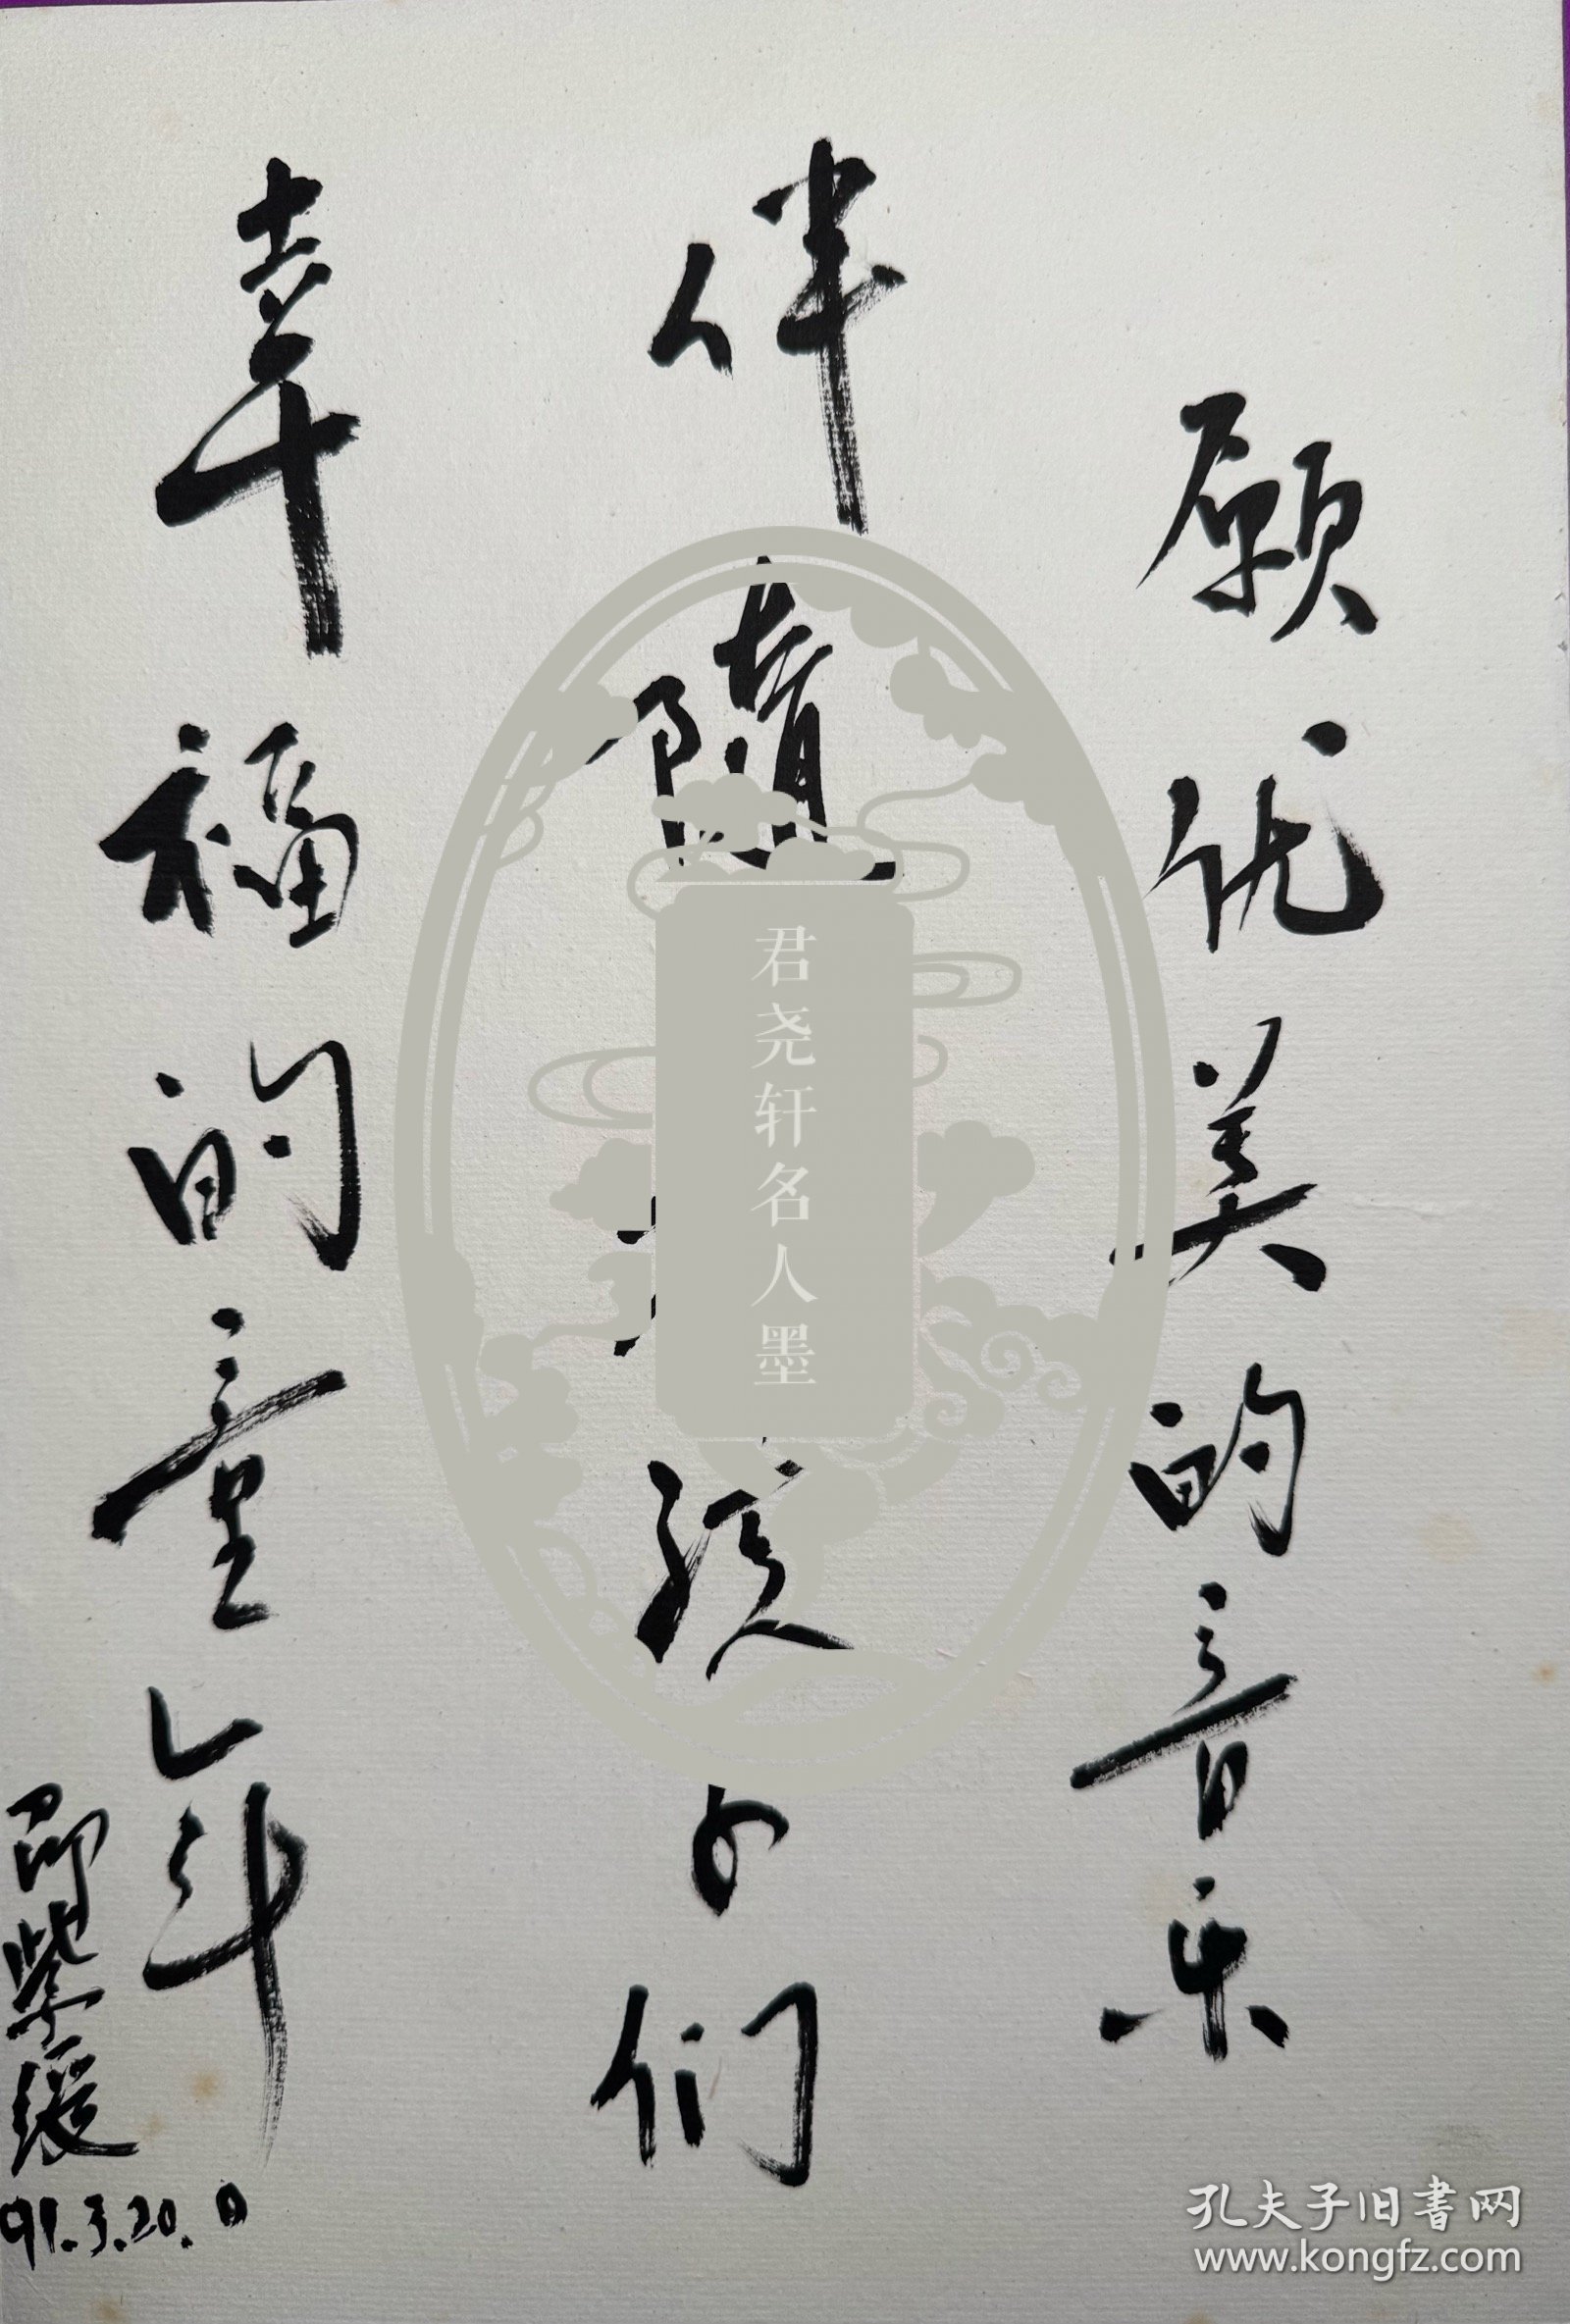 愿优美的音乐
伴隨 孩子们
幸福的童年
邵紫绶
91.3.20.日
君尧轩名人墨
孔夫子旧書网
www.kongfz.com